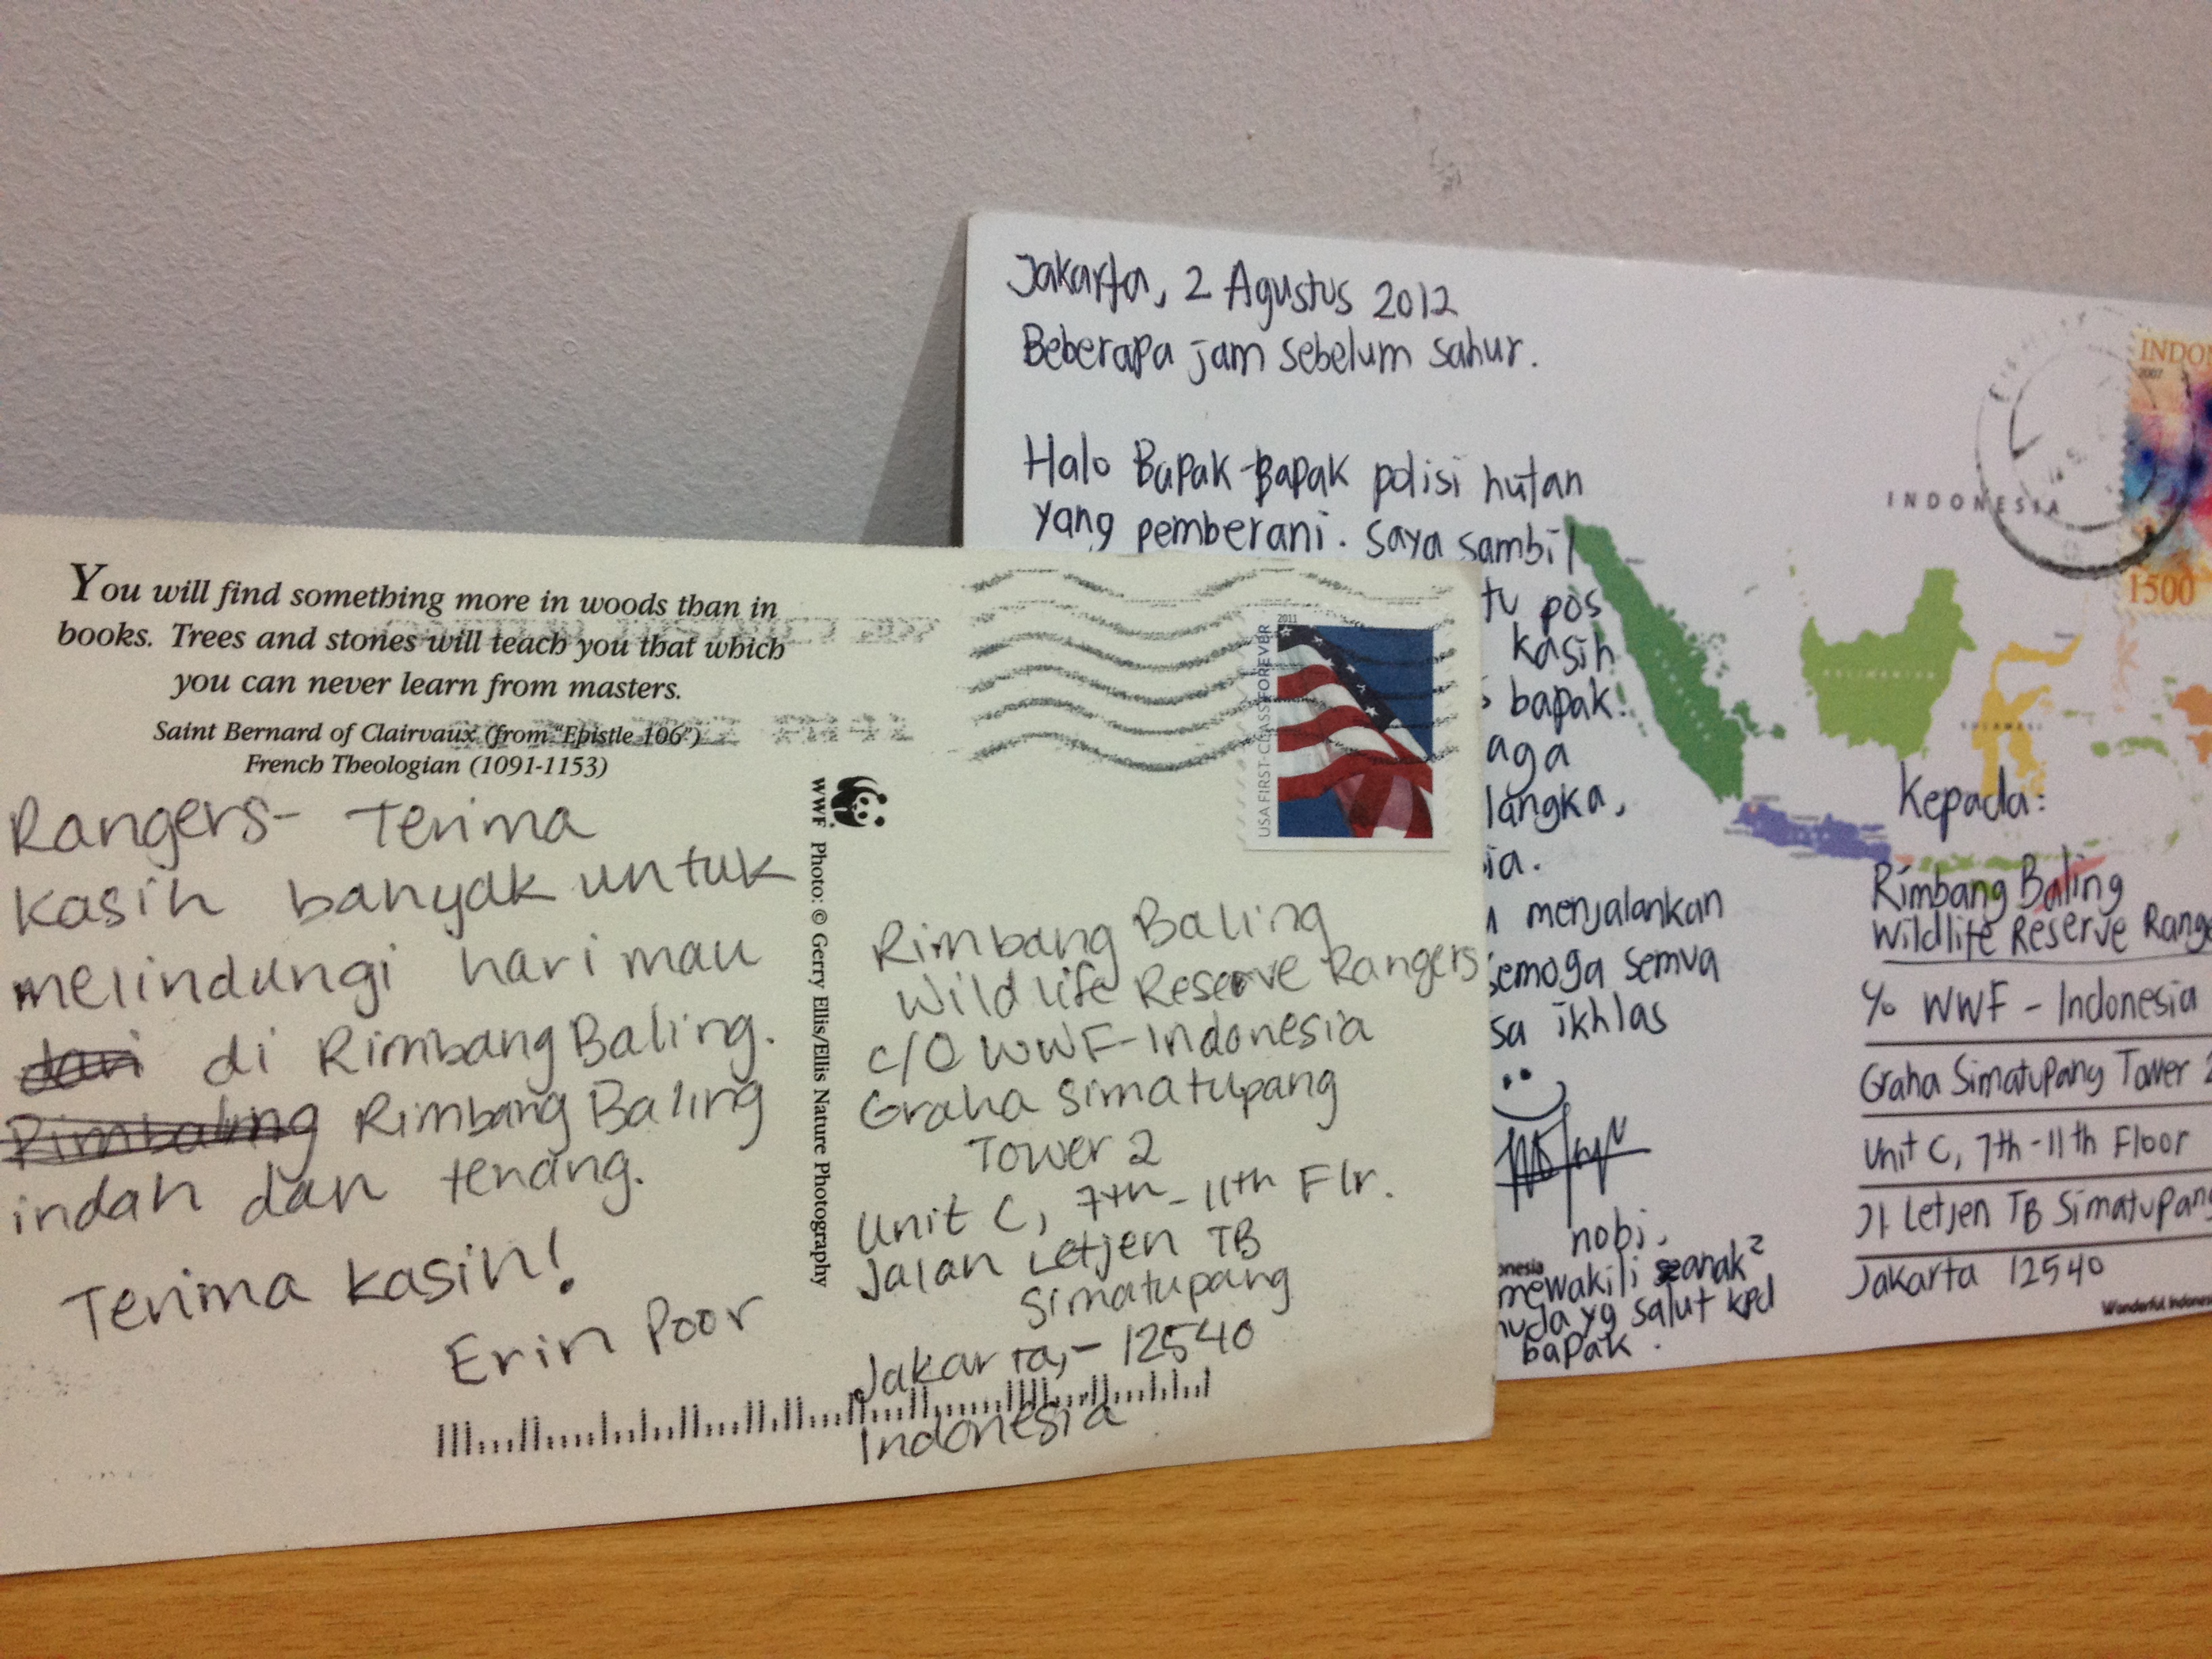 You will find something more in woods than in
books. Trees and stones will teach you that which
you can never learn from masters.
Saint Bernard of Clairvaux (from "Epistle 106")
French Theologian (1091-1153)
Rangers- Terima
kasih banyak untuk
melindungi harimau
dari di Rimbang Baling.
Rimbaling Rimbang Baling
indah dan tenang.
Terima kasih!
Erin Poor
WWF Photo: © Gerry Ellis/Ellis Nature Photography
2011
USA FIRST-CLASS FOREVER
Rimbang Baling
Wildlife Reserve Rangers
c/o WWF-Indonesia
Graha Simatupang
Tower 2
Unit C, 7th-11th Flr.
Jalan Letjen TB
Simatupang
Jakarta,- 12540
Indonesia
Jakarta, 2 Agustus 2012
Beberapa jam sebelum sahur.
Halo Bapak-Bapak polisi hutan
yang pemberani. Saya sambil
tu pos
kasih
bapak!
aga
langka,
ia.
menjalankan
semoga semua
sa ikhlas
nobi.
mewakili anak²
uda yg salut kpd
bapak.
INDONESIA
INDO
2007
1500
KALIMANTAN
SULAWESI
Kepada:
Rimbang Baling
Wildlife Reserve Range
c/o WWF - Indonesia
Graha Simatupang Tower 2
Unit C, 7th-11th Floor
Jl Letjen TB Simatupang
Jakarta 12540
Wonderful Indones